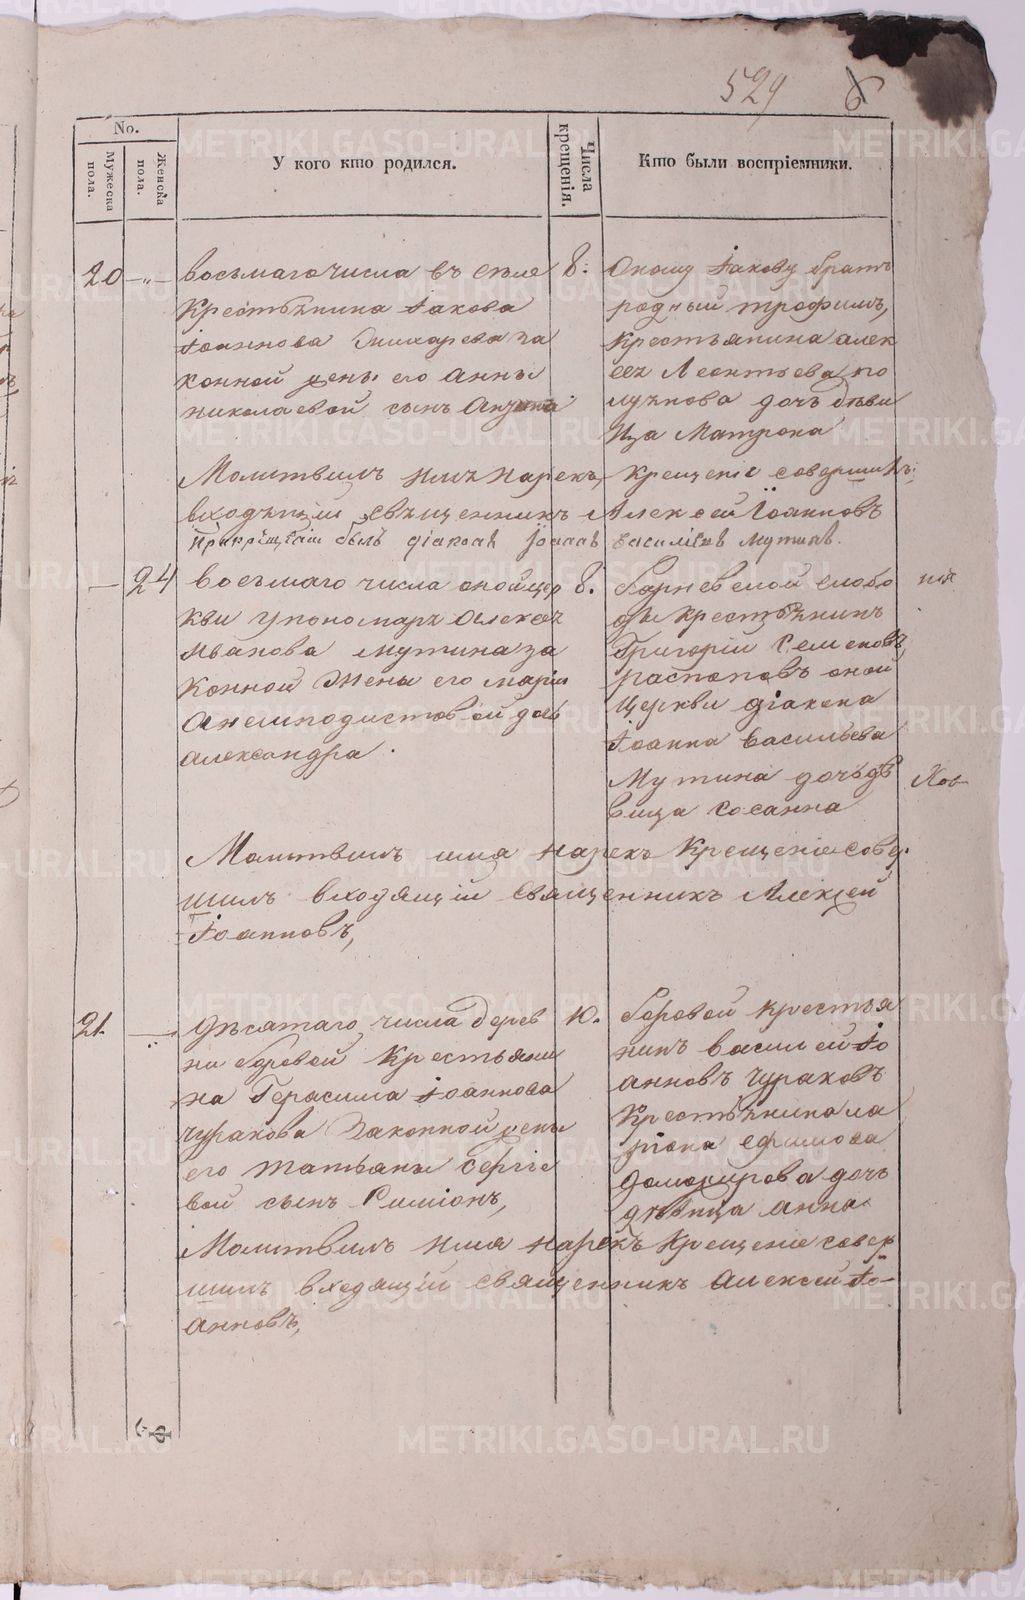 529 6
No.
Мужеска пола.
Женска пола.
У кого кто родился.
Числа крещенія.
Кто были воспріемники.
20 —„— восьмаго числа въ селе
Крестьянина Іакова
Іоаннова за
конной жены его Анны
николаевой сынъ
8.
Оному Іакову братъ
родный трофимъ,
Крестьянина алек
сея Леонтьева по
лукнова дочь деви
ца Матрона
Молитвилъ имя нарекъ, Крещеніе совершилъ
входящій священникъ Алексей Іоанновъ
При крещеніи былъ діаконъ Іоаннъ Василіевъ Мутинъ.
— 24 восьмаго числа оной цер
кви у пономаря алексея
Иванова мутина за
конной жены его маріи
Анемподистовой дочь
александра.
8.
слобо
ды крестьянинъ
Григорій Семеновъ
распоповъ оной
Церкви діакона
Іоанна Васильева
Мутина дочь дѣ
вица Сосанна
Молитвилъ имя нарекъ Крещеніе совер
шилъ входящій священникъ Алексей
Іоанновъ,
21. — десятаго числа дерев
ни боровой Крестьяни
на Герасима Іоаннова
чуракова законной жены
его татьяны Сергіе
вой сынъ Симіонъ,
10.
боровой крестья
нинъ василей Іо
анновъ Чураковъ
Крестьянина ла
ріона ефимова
доможирова дочь
дѣвица анна
Молитвилъ имя нарекъ Крещеніе совер
шилъ входящій священникъ алексей Іо-
анновъ,
METRIKI.GASO-URAL.RU